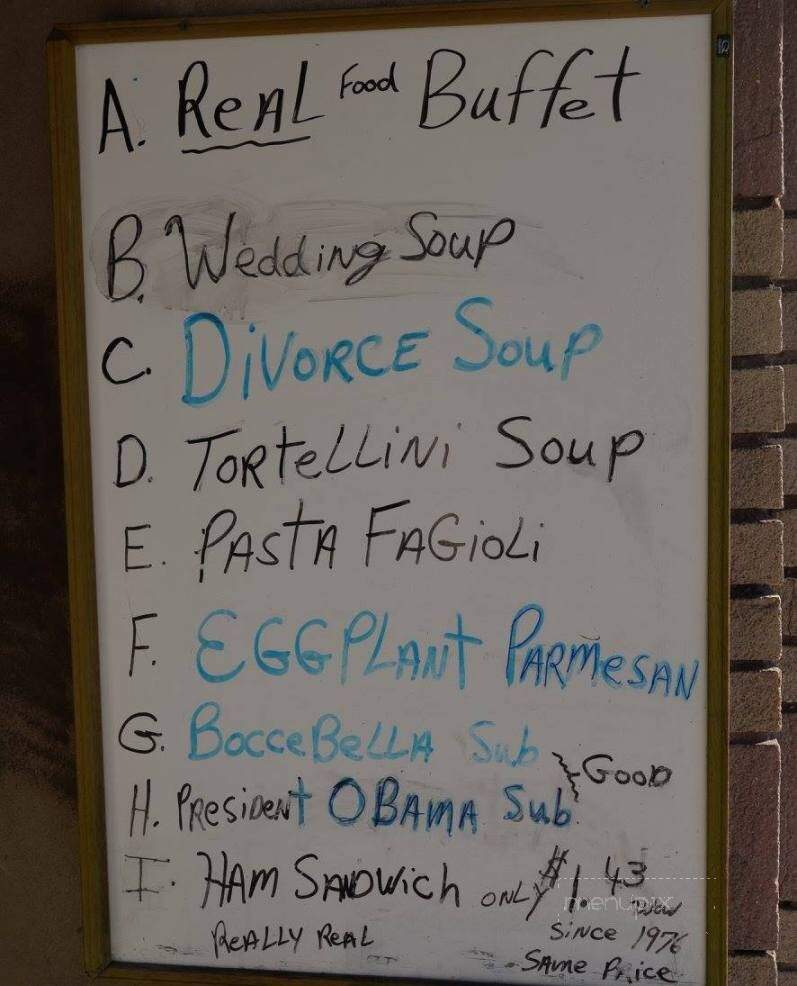 A. ReAL Food Buffet
B. Wedding Soup
C. DiVORCE Soup
D. TORteLLiNi Soup
E. PAStA FAGioLi
F. EGGPLANt PARmeSAN
G. BocceBeLLA Sub
H. PResideNt OBAMA Sub } GooD
I. HAM SANDWich ONLY $1.43
ReALLY ReAL
Since 1976
SAme Price
menupix